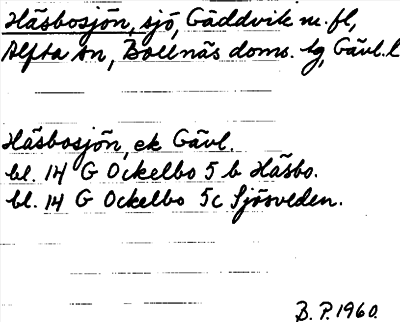 Häsbosjön, sjö, Gäddvik m. fl,
Alfta sn, Bollnäs doms. tg, Gävl. l
Häsbosjön, ek Gävl.
bl. 14 G Ockelbo 5 b Häsbo.
bl. 14 G Ockelbo 5c Sjösveden.
B. P. 1960.